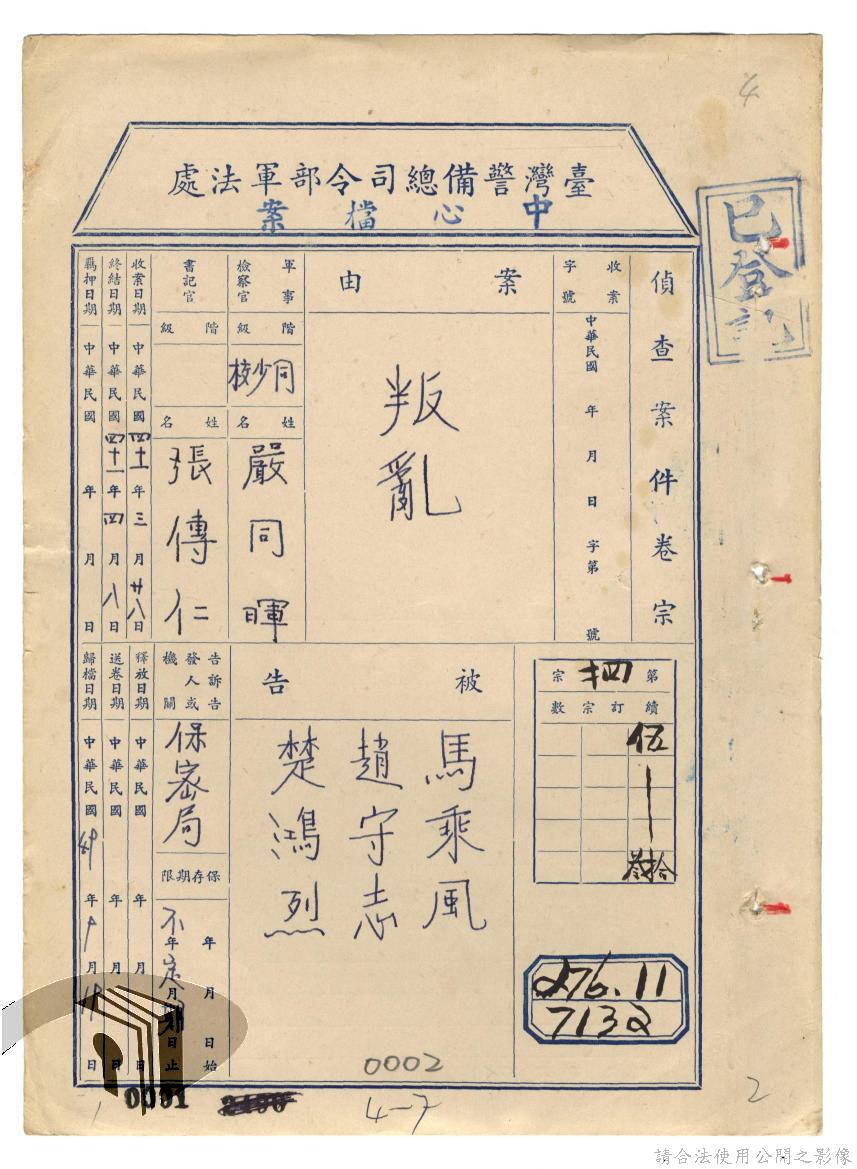 4
臺灣警備總司令部軍法處
中心檔案
已登記
偵查案件卷宗
收案字號
中華民國 年 月 日 字第 號
案由
叛亂
軍事檢察官
階級
同少校
姓名
嚴同暉
書記官
階級
姓名
張傳仁
收案日期 中華民國四十一年三月廿八日
終結日期 中華民國四十一年四月八日
羈押日期 中華民國 年 月 日
第 宗
續訂宗數
伍
叄拾
被告
馬乘風
趙守志
楚鴻烈
告訴告發人或機關
保密局
保存期限
年 月 日始
不定期
年 月 日止
釋放日期 中華民國 年 月 日
送卷日期 中華民國 年 月 日
歸檔日期 中華民國49年9月19日
276.11
7132
0002
0001
4-7
2
請合法使用公開之影像